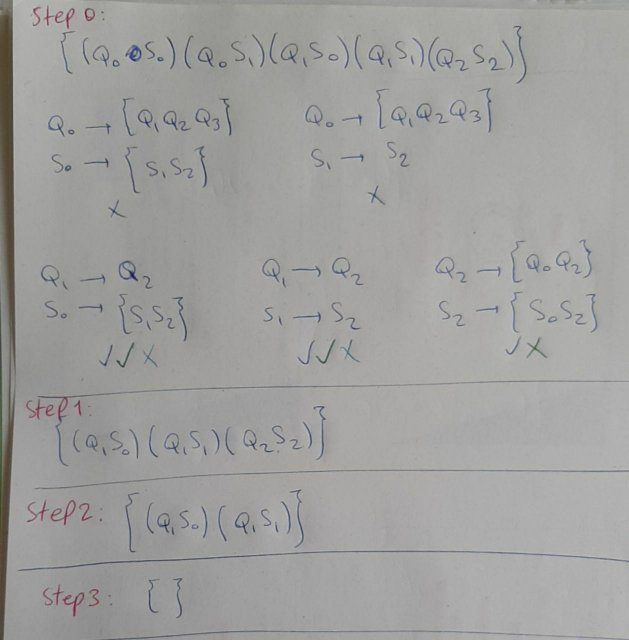 Step 0:
{(Q₀ S₀)(Q₀ S₁)(Q₁ S₀)(Q₁ S₁)(Q₂ S₂)}
Q₀ → {Q₁ Q₂ Q₃}
S₀ → {S₁ S₂}
x
Q₀ → {Q₁ Q₂ Q₃}
S₁ → S₂
x
Q₁ → Q₂
S₀ → {S₁ S₂}
✓✓x
Q₁ → Q₂
S₁ → S₂
✓✓x
Q₂ → {Q₀ Q₂}
S₂ → {S₀ S₂}
✓x
Step 1:
{(Q₁ S₀)(Q₁ S₁)(Q₂ S₂)}
Step 2:
{(Q₁ S₀)(Q₁ S₁)}
Step 3: { }